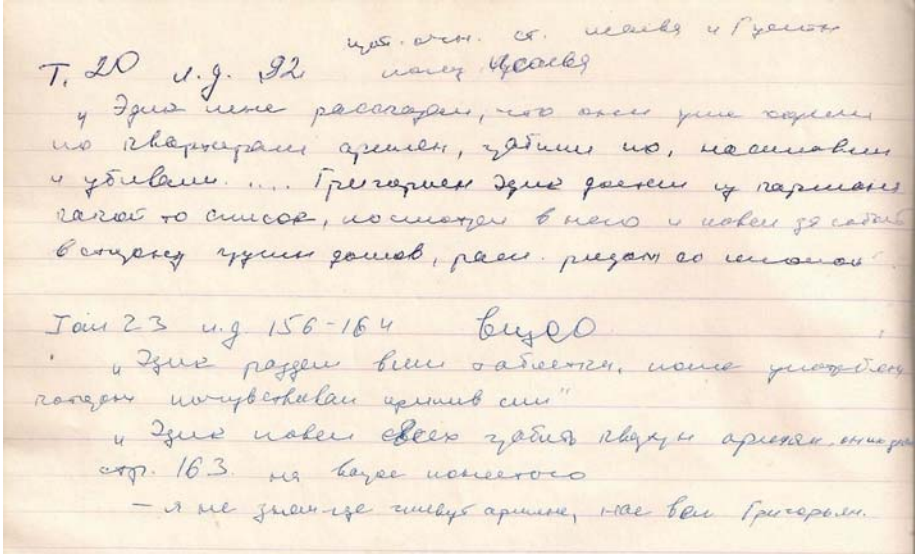 ст. и
Т. 20 л.д. 92 Исаева
„Эдик мне рассказал, что они уже ходили
по квартирам армян, грабили их, насиловали
и убивали. .... Григорян Эдик достал из кармана
какой то список, посмотрел в него и повел за собой
в сторону группы домов, расп. рядом со школой"
Том 23 л.д. 156-164 видео
„Эдик раздал всем таблетки, после
почувствовал прилив сил"
„Эдик повел всех грабить армян
стр. 163. на видео
– я не знал где живут армяне, нас вел Григорьян.